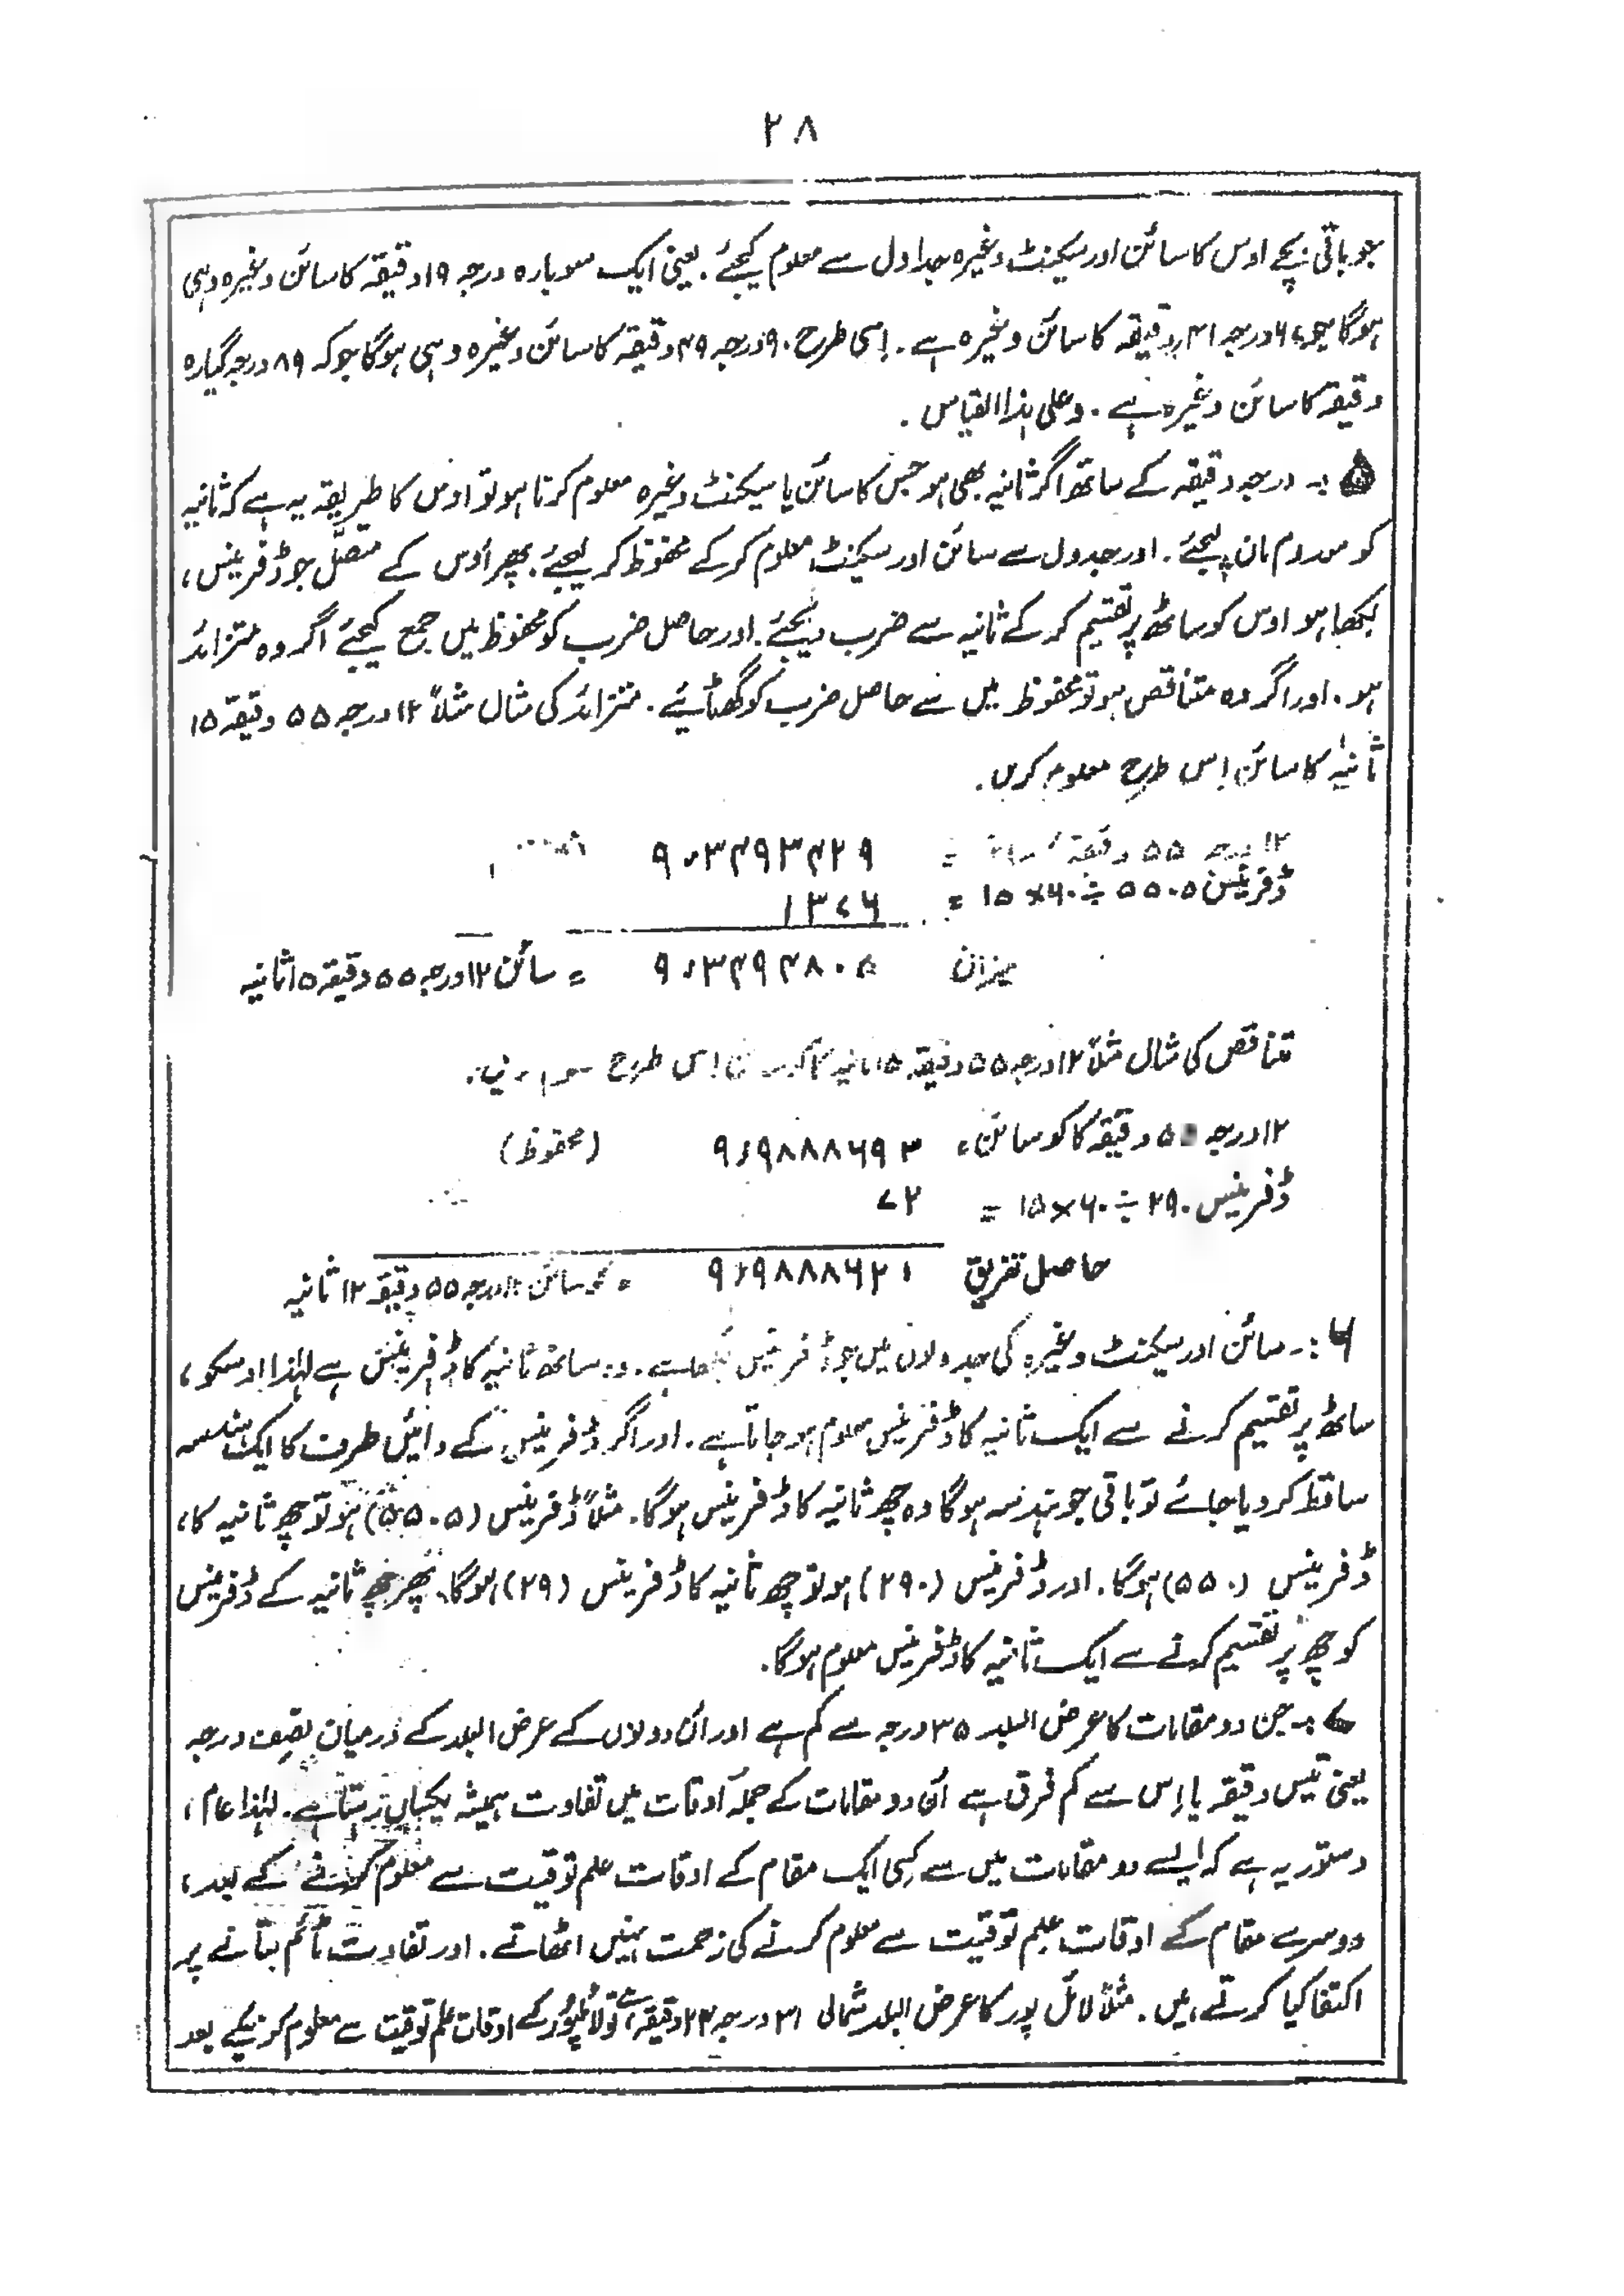 ۲۸
جو باقی بچے اوس کا سائن اور سیکنٹ وغیرہ جداول سے معلوم کیجئے. یعنی ایک سو بارہ درجہ ۱۹ دقیقہ کا سائن وغیرہ وہی
ہوگا جو ۶۷ درجہ ۴۱ دقیقہ کا سائن وغیرہ ہے. اِسی طرح ۹۰ درجہ ۴۹ دقیقہ کا سائن وغیرہ وہی ہوگا جو کہ ۸۹ درجہ گیارہ
دقیقہ کا سائن وغیرہ ہے. وعلی ہذا القیاس.
۵ :- درجہ دقیقہ کے ساتھ اگر ثانیہ بھی ہو جس کا سائن یا سیکنٹ وغیرہ معلوم کرنا ہو تو اوس کا طریقہ یہ ہے کہ ثانیہ
کو معدوم مان لیجئے. اور جدول سے سائن اور سیکنٹ معلوم کر کے محفوظ کر لیجئے. پھر اُوس کے متصل جو ڈفرینس،
لکھا ہو اوس کو ساٹھ پر تقسیم کر کے ثانیہ سے ضرب دیجئے. اور حاصل ضرب کو محفوظ میں جمع کیجئے اگر وہ متزائد
ہو. اور اگر وہ متناقص ہو تو محفوظ میں سے حاصل ضرب کو گھٹائیے. متزائد کی مثال مثلاً ۱۲ درجہ ۵۵ دقیقہ ۱۵
ثانیہ کا سائن اِس طرح معلوم کریں.
۱۲ درجہ ۵۵ دقیقہ کا = ۹٫۳۴۹۳۴۲۹
ڈفرینس ۵۵۰۵ ÷ ۶۰ × ۱۵ = ۱۳۷۶
میزان ۹٫۳۴۹۴۸۰۵ = سائن ۱۲ درجہ ۵۵ دقیقہ ۱۵ ثانیہ
متناقص کی مثال مثلاً ۱۲ درجہ ۵۵ دقیقہ ۱۵ ثانیہ کا اِس طرح
۱۲ درجہ ۵۵ دقیقہ کا کو سائن = ۹٫۹۸۸۸۶۹۳ (محفوظ)
ڈفرینس ۲۹۰ ÷ ۶۰ × ۱۵ = ۷۲
حاصل تفریق ۹٫۹۸۸۸۶۲۱ = کو سائن ۱۲ درجہ ۵۵ دقیقہ ۱۲ ثانیہ
۶ :- سائن اور سیکنٹ وغیرہ کی جدولوں میں جو ڈفرینس لکھا ہے. وہ ساٹھ ثانیہ کا ڈفرینس ہے لہٰذا اوسکو،
ساٹھ پر تقسیم کرنے سے ایک ثانیہ کا ڈفرینس معلوم ہو جاتا ہے. اور اگر ڈفرینس کے دائیں طرف کا ایک ہندسہ
ساقط کر دیا جائے تو باقی جو ہندسہ ہوگا وہ چھ ثانیہ کا ڈفرینس ہوگا. مثلاً ڈفرینس (۵۵۰۵) ہو تو چھ ثانیہ کا،
ڈفرینس (۵۵۰) ہوگا. اور ڈفرینس (۲۹۰) ہو تو چھ ثانیہ کا ڈفرینس (۲۹) ہوگا. پھر چھ ثانیہ کے ڈفرینس
کو چھ پر تقسیم کرنے سے ایک ثانیہ کا ڈفرینس معلوم ہوگا.
۷ :- جن دو مقامات کا عرض البلد ۳۵ درجہ سے کم ہے اور اُن دونوں کے عرض البلد کے درمیان نصف درجہ
یعنی تیس دقیقہ یا اِس سے کم فرق ہے اُن دو مقامات کے جملہ اوقات میں تفاوت ہمیشہ یکساں رہتا ہے. لہٰذا عام،
دستور یہ ہے کہ ایسے دو مقامات میں سے کِسی ایک مقام کے اوقات علم توقیت سے معلوم کرنے کے بعد،
دوسرے مقام کے اوقات علم توقیت سے معلوم کرنے کی زحمت نہیں اٹھاتے. اور تفاوت ٹائم بتانے پر
اکتفا کیا کرتے ہیں. مثلاً لائل پور کا عرض البلد شمالی ۳۱ درجہ ۲۴ دقیقہ ہے تو لائلپور کے اوقات علم توقیت سے معلوم کرنیکے بعد